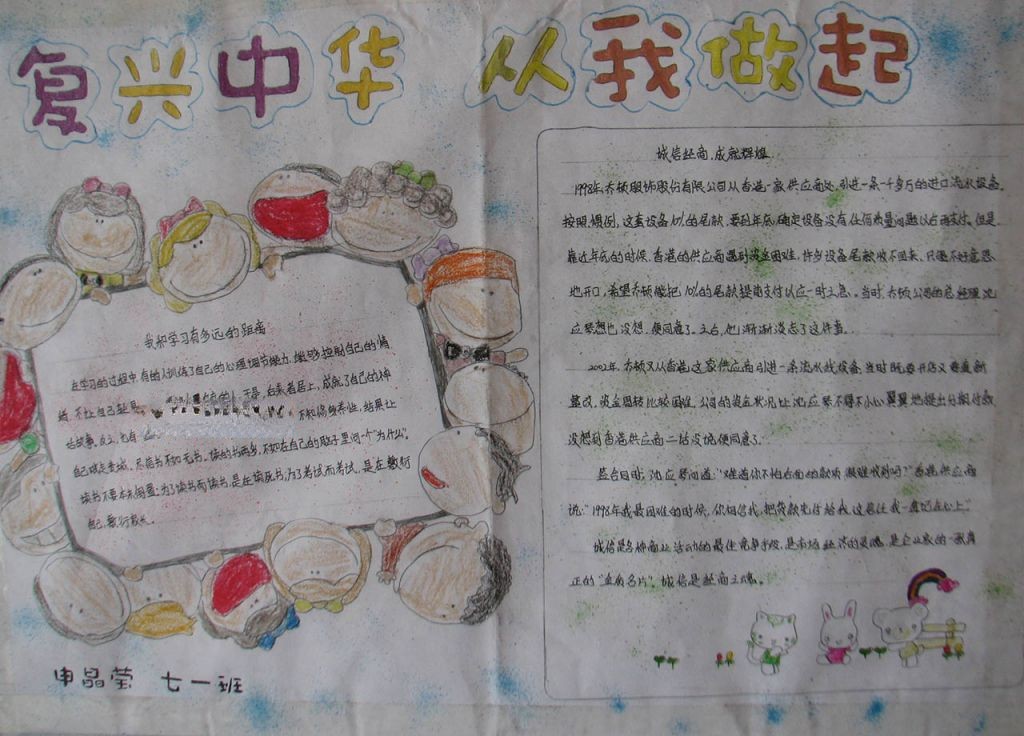 复兴中华 从我做起
我和学习有多远的距离
在学习的过程中有的人训练了自己的心理调节能力,能够控制自己的情
绪,不让自己轻易 于是,后来者居上,成就了自己的辉
话故事。反之,也有 不知修身养性,结果让
自己功亏一篑。尽信书不如无书。读的书再多,不如在自己的肚子里问一个"为什么"。
读书不要本末倒置:为了读书而读书,是在读死书,为了考试而考试,是在敷衍
自己,敷衍家长。
申晶莹 七一班
诚信经商,成就辉煌
1998年乔顿服饰股份有限公司从香港一家供应商处,引进一条一千多万的进口流水设备。
按照惯例,这套设备10%的尾款,要到年底确定设备没有任何质量问题以后再支付。但是
靠近年底的时候,香港的供应商遇到资金困难,许多设备尾款收不回来、只得不好意思
地开口,希望乔顿能把10%的尾款提前支付以应一时之急。当时,乔顿公司的总经理沈
应琴想也没想,便同意了。之后,他渐渐淡忘了这件事。
2002年,乔顿又从香港这家供应商引进一条流水线设备,当时既要开店又要重新
整改,资金周转比较困难,公司的资金状况让沈应琴不得不小心翼翼地提出分期付款
没想到香港供应商二话没说便同意了。
签合同时,沈应琴问道:"难道你不怕后面的款项很难收到吗?"香港供应商
说:"1998年我最困难的时候,你相信我,把货款先付给我,这恩让我一直记在心上"
诚信是各种商业活动的最佳竞争手段,是市场经济的灵魂,是企业家的一张真
正的"金质名片"。诚信是经商之魂。